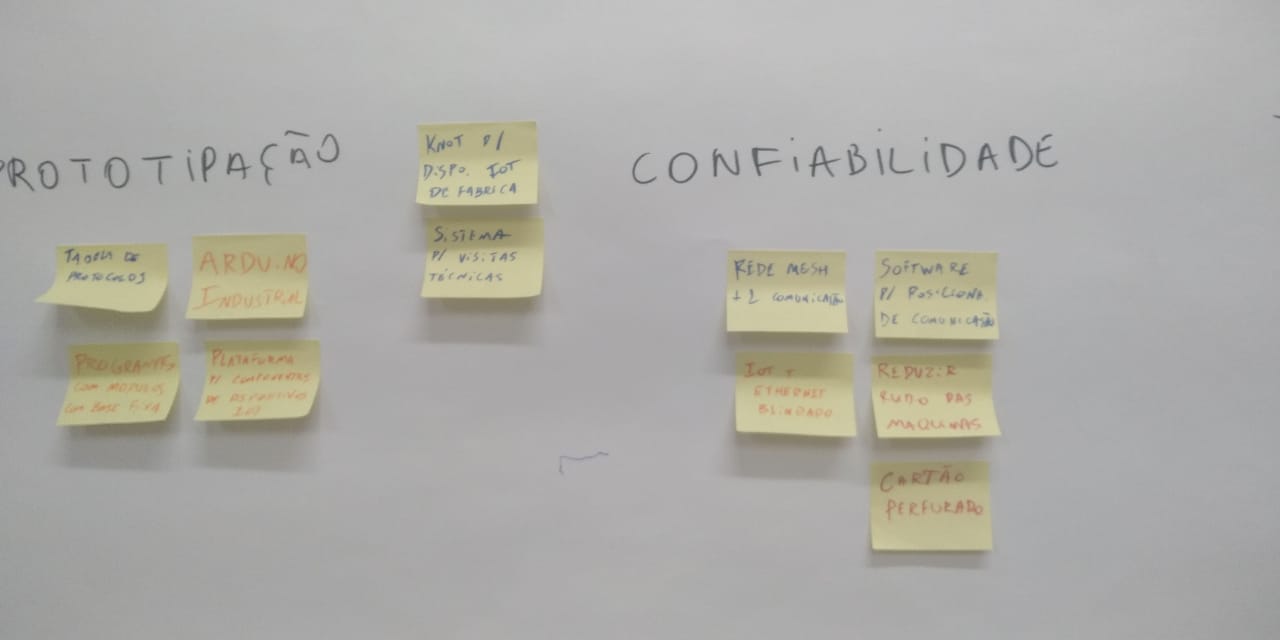 PROTOTIPAÇÃO
TABELA DE
PROTOCOLOS
ARDUINO
INDUSTRIAL
COM MODULOS
COM BASE FIXA
PLATAFORMA
P/ COMPONENTES
DE DISPOSITIVO
IOT
KNOT P/
DISPO. IOT
DE FABRICA
SISTEMA
P/ VISITAS
TÉCNICAS
CONFIABILIDADE
REDE MESH
+ 1 COMUNICAÇÃO
SOFTWARE
P/ POSICIONA.
DE COMUNICAÇÃO
IOT +
ETHERNET
BLINDADO
REDUZIR
RUIDO DAS
MAQUINAS
CARTÃO
PERFURADO